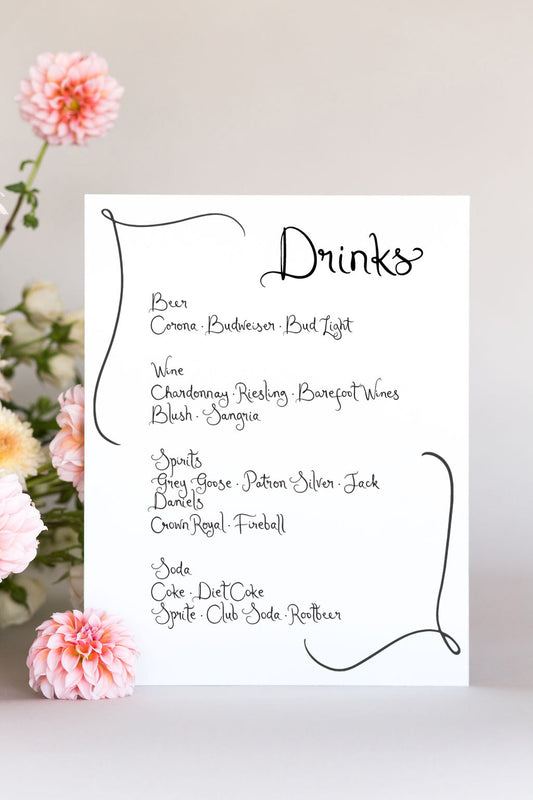 Drinks
Beer
Corona · Budweiser · Bud Light
Wine
Chardonnay · Riesling · Barefoot Wines
Blush · Sangria
Spirits
Grey Goose · Patron Silver · Jack
Daniels
Crown Royal · Fireball
Soda
Coke · Diet Coke
Sprite · Club Soda · Rootbeer